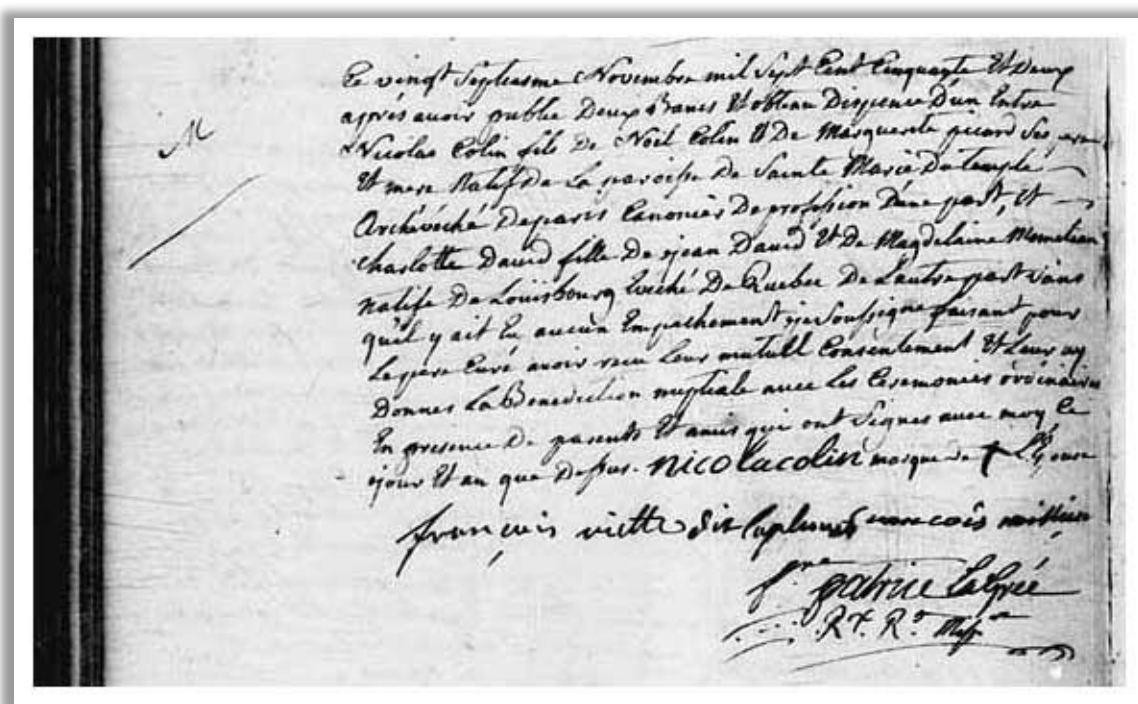 M
Le vingt Septiesme Novembre mil Sept Cent Cinquante Et Deux
après avoir publié Deux Bancs Et obtenu Dispence D'un Entre
Nicolas Colin fils De Noël Colin Et De Marguerite picard Ses pere
Et mere Natif De La paroisse De Sainte Marie Du temple
Archevéché De paris Canonier De profession D'une part, Et
Charlotte David fille De jean David Et De Magdelaine
Natife De Louisbourg Evéché De Quebec De L'autre part Sans
qu'il y ait Eu aucun Empechement je Soussigné faisant pour
Le pere Curé avoir recu Leur mutuell Consentement Et Leur ay
Donner La Benediction nuptiale avec Les Ceremonies ordinaires
En presence De parents Et amis qui ont Signes avec moy Le
jour Et an que Dessus. nicolacolin marque de + L'Epouse
françois viette dit
patrice LaGrée
R.x. R.t Miss.re